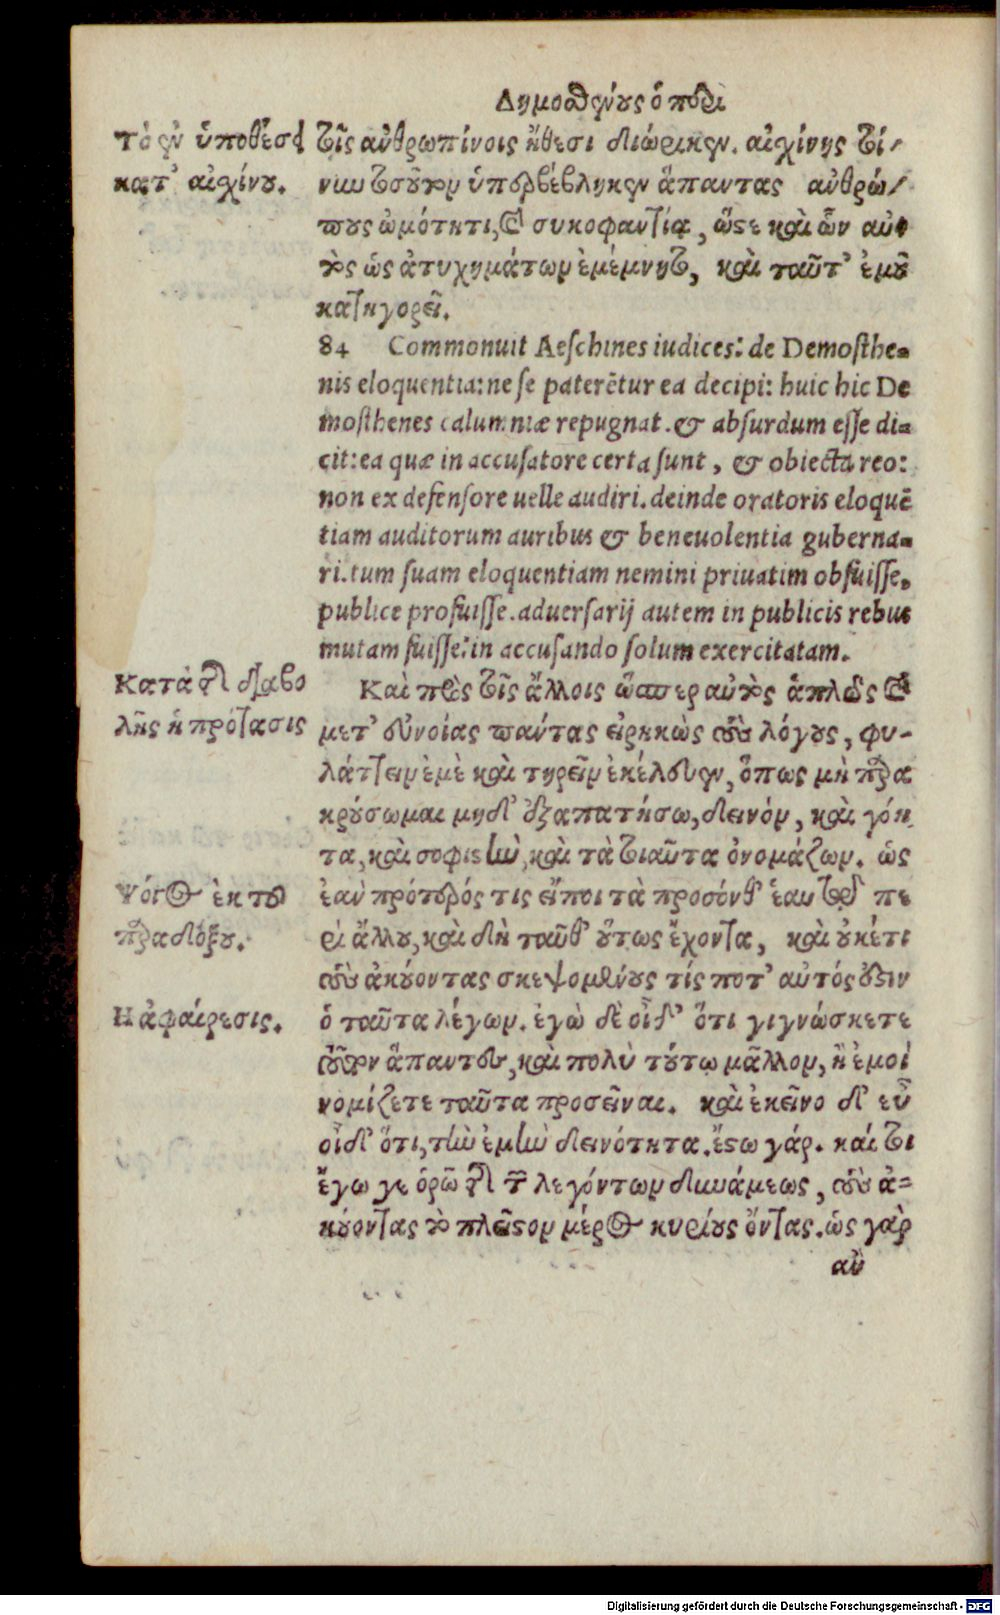 Δημοσθένους ὁ περὶ
Τὸ ἐν ὑποθέσει
κατ' αἰσχίνου.
τοῖς ἀνθρωπίνοις ἤθεσι διώρικεν. αἰσχίνης τοί-
νυν τοσοῦτον ὑπερβέβληκεν ἅπαντας ἀνθρώ-
πους ὠμότητι, καὶ συκοφαντίᾳ, ὥστε καὶ ὧν αὐ-
τὸς ὡς ἀτυχημάτων ἐμέμνητο, καὶ ταῦτ' ἐμοῦ
κατηγορεῖ.
84 Commonuit Aeſchines iudices: de Demoſthe=
nis eloquentia: ne ſe paterētur ea decipi: huic hic De
moſthenes calumniæ repugnat. & abſurdum eſſe di=
cit: ea quæ in accuſatore certa ſunt, & obiecta reo:
non ex defenſore uelle audiri. deinde oratoris eloquē
tiam auditorum auribus & beneuolentia guberna=
ri. tum ſuam eloquentiam nemini priuatim obfuiſſe,
publice profuiſſe. aduerſarij autem in publicis rebus
mutam fuiſſe: in accuſando ſolum exercitatam.
Κατὰ τῆς διαβο
λῆς ἡ πρότασις
Καὶ πρὸς τοῖς ἄλλοις ὥσπερ αὐτὸς ἁπλῶς καὶ
μετ' εὐνοίας πάντας εἰρηκὼς τοὺς λόγους, φυ-
λάττειν ἐμὲ καὶ τηρεῖν ἐκέλευεν, ὅπως μὴ παρα
κρούσωμαι μηδ' ἐξαπατήσω, δεινὸν, καὶ γόη
τα, καὶ σοφιστὴν, καὶ τὰ τοιαῦτα ὀνομάζων. ὡς
Ψόγος ἐκ τοῦ
παραδόξου.
ἐὰν πρότερός τις εἴποι τὰ προσόνθ' ἑαυτῷ πε
ρὶ ἄλλου, καὶ δὴ ταῦθ' οὕτως ἔχοντα, καὶ οὐκέτι
τοὺς ἀκούοντας σκεψομένους τίς ποτ' αὐτός ἐστιν
Η ἀφαίρεσις.
ὁ ταῦτα λέγων. ἐγὼ δὲ οἶδ' ὅτι γιγνώσκετε
τοῦτον ἅπαντες, καὶ πολὺ τούτῳ μᾶλλον, ἢ ἐμοὶ
νομίζετε ταῦτα προσεῖναι. καὶ ἐκεῖνο δ' εὖ
οἶδ' ὅτι, τὴν ἐμὴν δεινότητα. ἔστω γάρ. καί τοι
ἔγω γε ὁρῶ τῆς τῶν λεγόντων δυνάμεως, τοὺς ἀ=
κούοντας τὸ πλεῖστον μέρος κυρίους ὄντας. ὡς γὰρ
αὖ